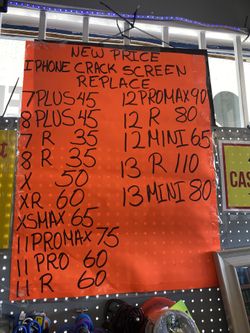 NEW PRICE
IPHONE CRACK SCREEN
REPLACE
7 PLUS 45
8 PLUS 45
7 R 35
8 R 35
X 50
XR 60
XSMAX 65
11 PROMAX 75
11 PRO 60
11 R 60
12 PROMAX 90
12 R 80
12 MINI 65
13 R 110
13 MINI 80
CAS